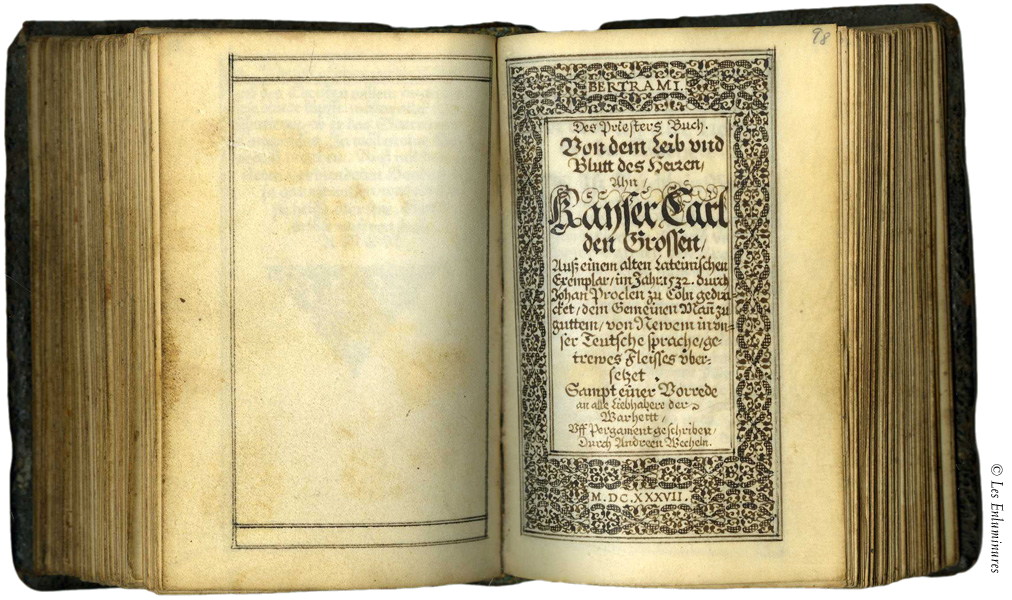 98
BERTRAMI.
Des Priesters Buch.
Von dem Leib vnd
Blutt des Herren/
Ahn/
Kayser Carl
den Grossen/
Auß einem alten Lateinischen
Exemplar/im Jahr.1532. durch
Johan Proelen zu Cöln gedru-
cket/dem Gemeinen Mañ zu
guttem/von Newem in vn-
ser Teutsche sprache/ge-
trewes Fleisses vber-
setzet
Sampt einer Vorrede
an alle Liebhabere der
Warheitt/
Vff Pergament geschriben/
Durch Andreen Wecheln.
M.DC.XXXVII.
© Les Enluminures